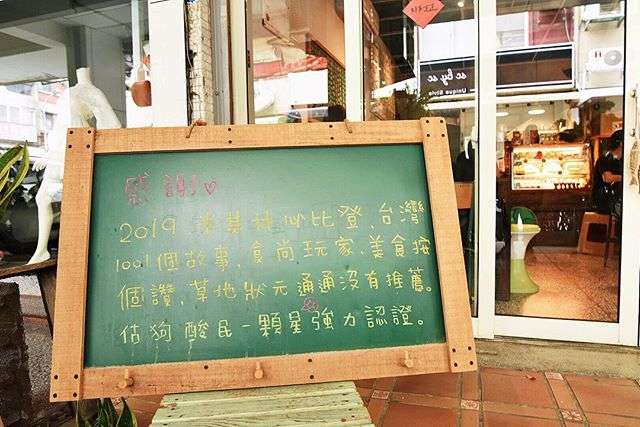 感謝♡
2019 米其林必比登、台灣
1001個故事、食尚玩家、美食按
個讚、草地狀元通通沒有推薦。
估狗酸民一顆星強力認證。
sc by sc
Unique Style